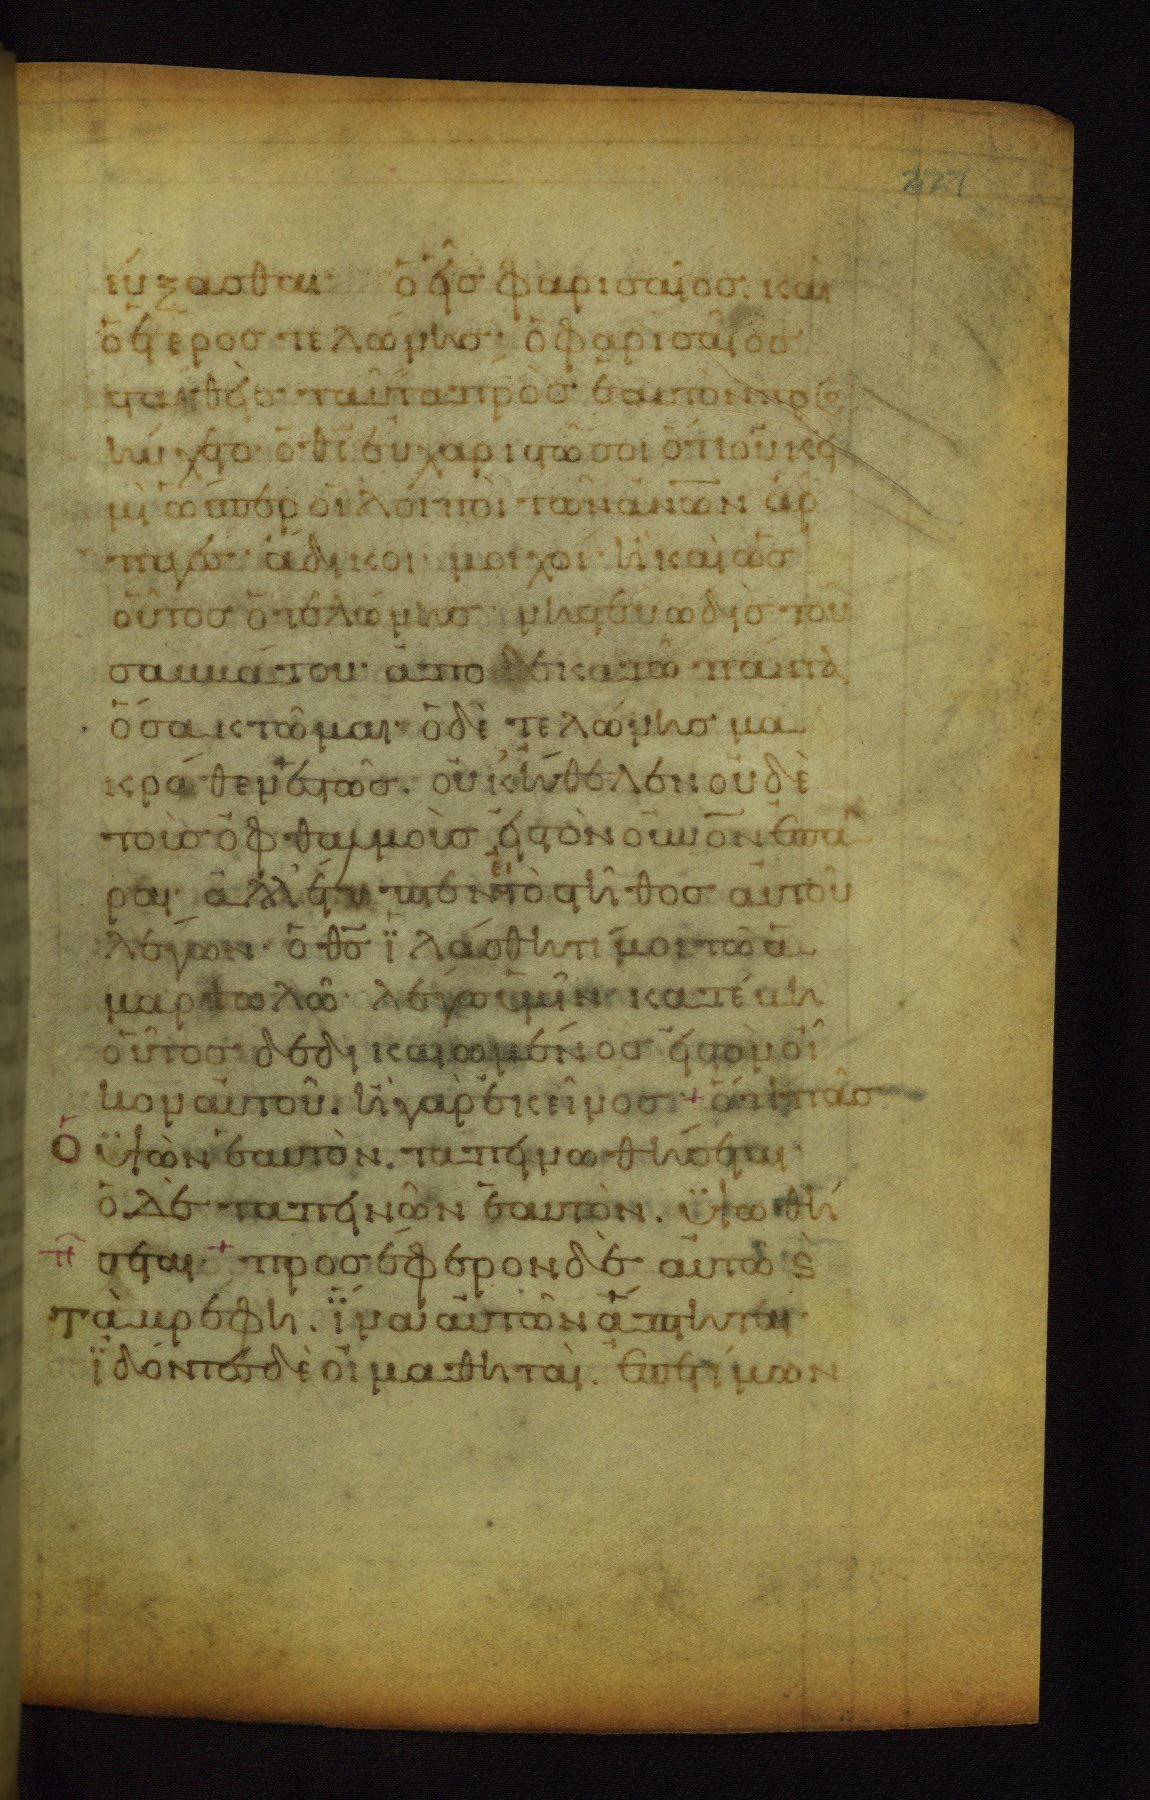 227
εὔξασθαι ὁ εἷς φαρισαῖος. καὶ
ὁ ἕτερος τελώνης· ὁ φαρισαῖος
σταθεὶς ταῦτα πρὸς ἑαυτὸν προσ
ηύχετο· ὁ θς εὐχαριστῶ σοι ὅτι οὐκ εἰ
μὶ ὥσπερ οἱ λοιποὶ τῶν ἀνων ἅρ
παγες· ἄδικοι· μοιχοί· ἢ καὶ ὡς
οὗτος ὁ τελώνης· νηστεύω δὶς τοῦ
σαββάτου· ἀποδεκατῶ πάντα
ὅσα κτῶμαι· ὁ δὲ τελώνης μα
κρόθεν ἑστὼς. οὐκ ἤθελεν οὐδὲ
τοὺς ὀφθαλμοὺς εἰς τὸν οὐνον ἐπᾶ
ραι ἀλλ' ἔτυπτεν εἰς τὸ στῆθος αὐτοῦ
λέγων· ὁ θς ϊλάσθητι μοι τῶ ἁ
μαρτωλῶ· λέγω ὑμῖν· κατέβη
οὗτος δεδικαιωμένος εἰς τὸν οἶ
κον αὐτοῦ. ἢ γὰρ ἐκεῖνος + ὅτι πᾶς
ὁ ϋψῶν ἑαυτὸν. ταπεινωθήσεται
ὁ δὲ ταπεινῶν ἑαυτὸν. ϋψωθή
σεται + προσέφερον δὲ αὐτῶ ϗ
τὰ βρέφη. ϊνα αὐτῶν ἅπτηται
ϊδόντες δὲ οἱ μαθηταὶ. ἐπετίμων